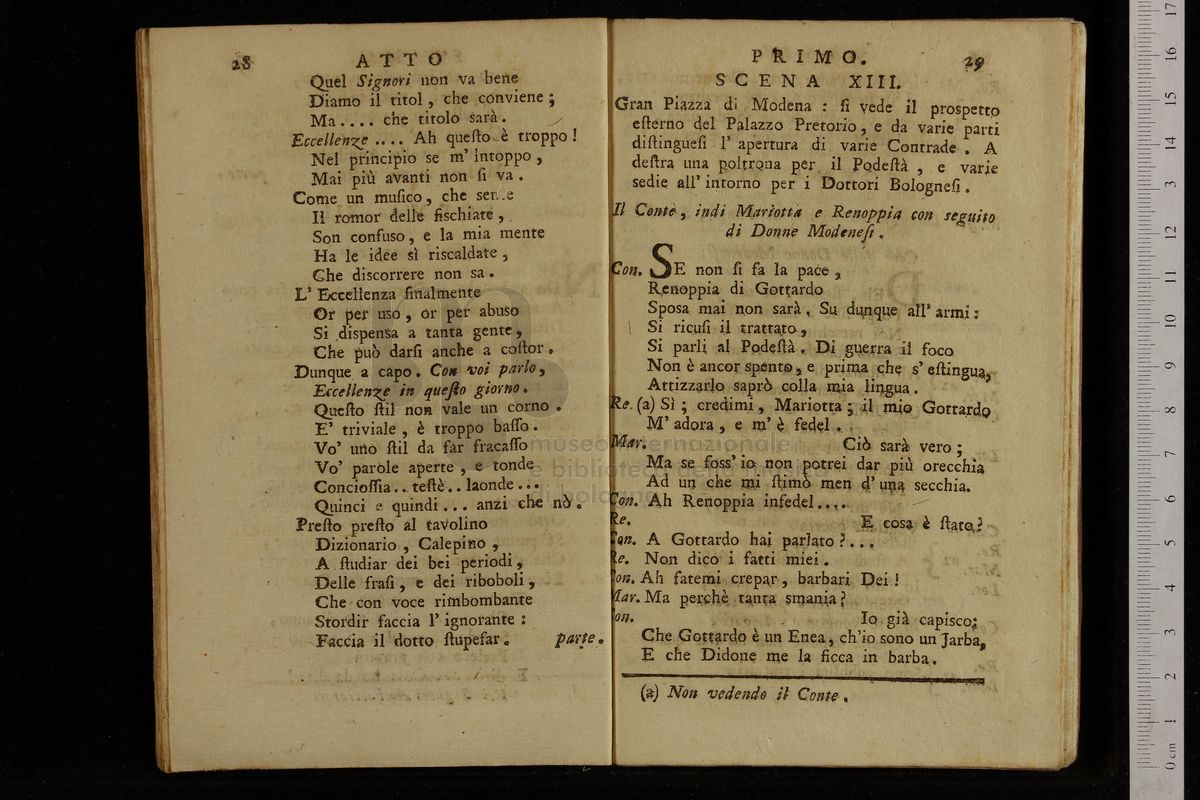 28 ATTO
Quel Signori non va bene
Diamo il titol, che conviene;
Ma.... che titolo sarà.
Eccellenze .... Ah queſto è troppo!
Nel principio se m' intoppo,
Mai più avanti non ſi va.
Come un muſico, che sente
Il romor delle fischiate,
Son confuso, e la mia mente
Ha le idee sì riscaldate,
Che discorrere non sa.
L' Eccellenza finalmente
Or per uso, or per abuso
Si dispensa a tanta gente,
Che può darſi anche a coſtor.
Dunque a capo. Con voi parlo,
Eccellenze in queſto giorno.
Queſto ſtil non vale un corno.
E' triviale, è troppo baſſo.
Vo' uno ſtil da far fracaſſo
Vo' parole aperte, e tonde
Concioſſia.. teſtè.. laonde...
Quinci e quindi... anzi che nò.
Preſto preſto al tavolino
Dizionario, Calepino,
A ſtudiar dei bei periodi,
Delle fraſi, e dei riboboli,
Che con voce rimbombante
Stordir faccia l' ignorante:
Faccia il dotto ſtupefar. parte.
PRIMO. 29
SCENA XIII.
Gran Piazza di Modena: ſi vede il prospetto
eſterno del Palazzo Pretorio, e da varie parti
diſtingueſi l' apertura di varie Contrade. A
deſtra una poltrona per il Podeſtà, e varie
sedie all' intorno per i Dottori Bologneſi.
Il Conte, indi Mariotta e Renoppia con seguito
di Donne Modeneſi.
Con. SE non ſi fa la pace,
Renoppia di Gottardo
Sposa mai non sarà. Su dunque all' armi:
Si ricuſi il trattato,
Si parli al Podeſtà. Di guerra il foco
Non è ancor spento, e prima che s' eſtingua,
Attizzarlo saprò colla mia lingua.
Re. (a) Sì; credimi, Mariotta; il mio Gottardo
M' adora, e m' è fedel.
Mar. Ciò sarà vero;
Ma se foss' io non potrei dar più orecchia
Ad un che mi ſtimò men d' una secchia.
Con. Ah Renoppia infedel....
Re. E cosa è ſtato?
Con. A Gottardo hai parlato?...
Re. Non dico i fatti miei.
Con. Ah fatemi crepar, barbari Dei!
Mar. Ma perchè tanta smania?
Con. Io già capisco:
Che Gottardo è un Enea, ch'io sono un Jarba,
E che Didone me la ficca in barba.
(a) Non vedendo il Conte.
museo internazionale
e biblioteca della musica
di bologna
0 cm 1 2 3 4 5 6 7 8 9 10 11 12 13 14 15 16 17